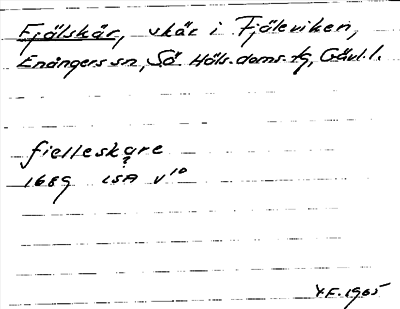 Fjälskär, skär i Fjäleviken,
Enångers sn, Sö. Häls. doms. tg, Gävl. l.
fielleskare
1689 LSA V 10
YF. 1965